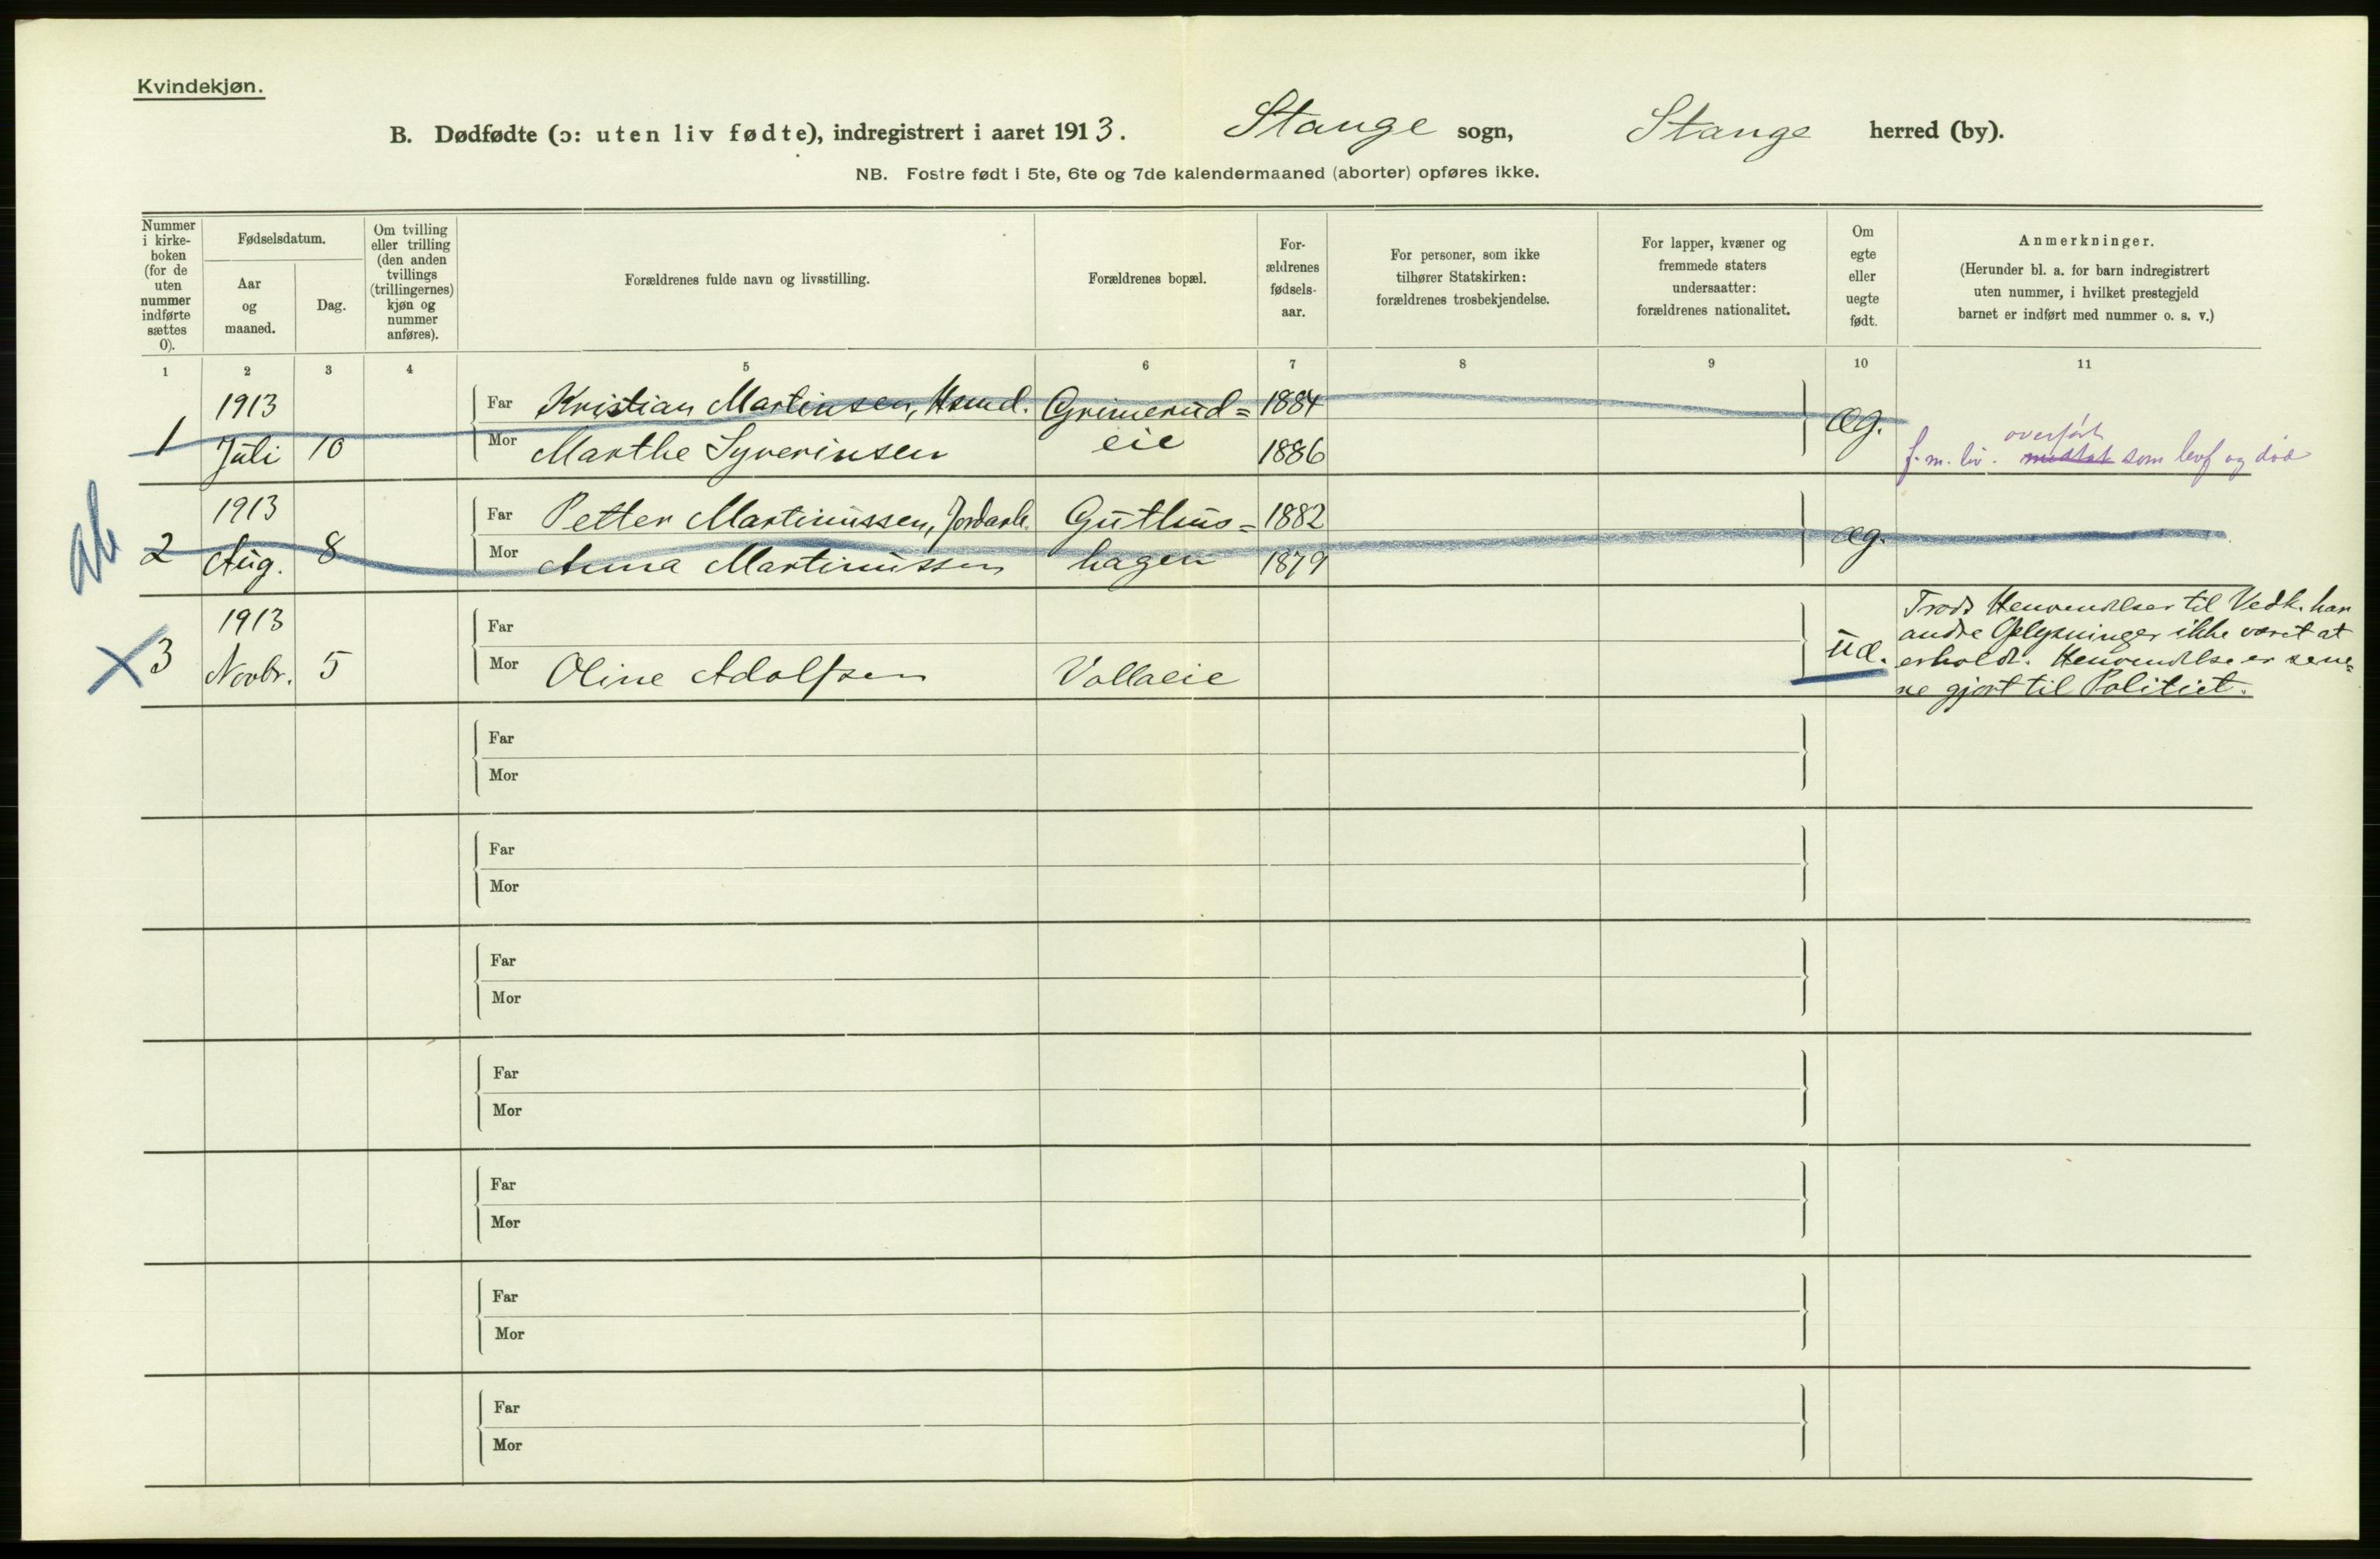 Kvindekjøn.
B. Dødfødte (ɔ: uten liv fødte), indregistrert i aaret 1913. Stange sogn, Stange herred (by).
NB. Fostre født i 5te, 6te og 7de kalendermaaned (aborter) opføres ikke.
Nummer
i kirke-
boken
(for de
uten
nummer
indførte
sættes
0).
Fødselsdatum.
Aar
og
maaned.
Dag.
Om tvilling
eller trilling
(den anden
tvillings
(trillingernes)
kjøn og
nummer
anføres).
Forældrenes fulde navn og livsstilling.
Forældrenes bopæl.
For-
ældrenes
fødsels-
aar.
For personer, som ikke
tilhører Statskirken:
forældrenes trosbekjendelse.
For lapper, kvæner og
fremmede staters
undersaatter:
forældrenes nationalitet.
Om
egte
eller
uegte
født.
Anmerkninger.
(Herunder bl. a. for barn indregistrert
uten nummer, i hvilket prestegjeld
barnet er indført med nummer o. s. v.)
1 2 3 4 5 6 7 8 9 10 11
1913 Far Kristian Martinsen, Hsmd. Grimerud= 1884
1 Juli 10 Mor Marthe Syverinsen eie 1886 Æg.
overført
f. m. liv. som levf og død
1913 Far Petter Martinussen, Jordarb. Guthus= 1882
2 Aug. 8 Mor Anna Martinussen hagen 1879 Æg.
1913 Far
3 Novbr. 5 Mor Oline Adolfsen Vollaeie
Trods Henvendelser til Vedk. har
andre Oplysninger ikke været at
erholde. Henvendelse er sene=
re gjort til Politiet.
Far
Mor
Far
Mor
Far
Mor
Far
Mor
Far
Mor
Far
Mor
Far
Mor